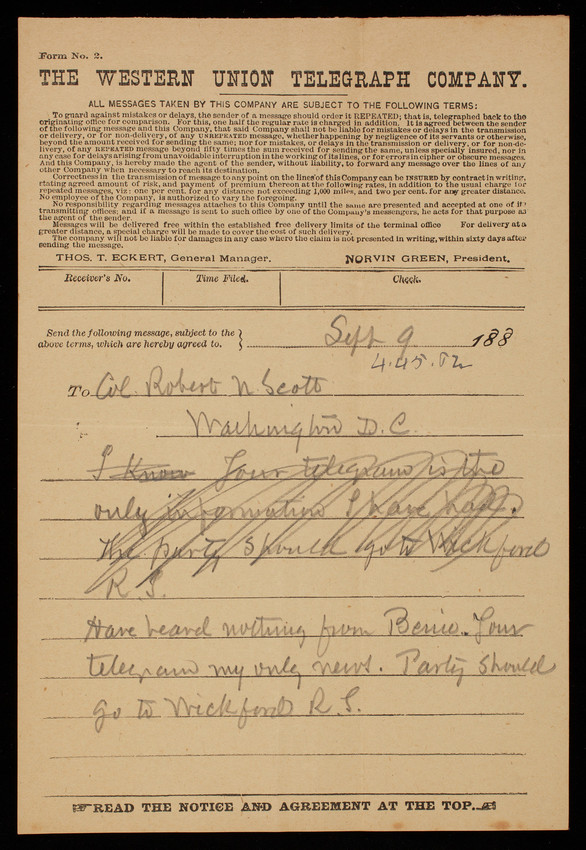 Form No. 2.
THE WESTERN UNION TELEGRAPH COMPANY.
ALL MESSAGES TAKEN BY THIS COMPANY ARE SUBJECT TO THE FOLLOWING TERMS:
To guard against mistakes or delays, the sender of a message should order it REPEATED; that is, telegraphed back to the
originating office for comparison. For this, one half the regular rate is charged in addition. It is agreed between the sender
of the following message and this Company, that said Company shall not be liable for mistakes or delays in the transmission
or delivery, or for non-delivery, of any UNREPEATED message, whether happening by negligence of its servants or otherwise,
beyond the amount received for sending the same; nor for mistakes, or delays in the transmission, or delivery, or for non-de-
livery, of any REPEATED message beyond fifty times the sum received for sending the same, unless specially insured, nor in
any case for delays arising from unavoidable interruption in the working of its lines, or for errors in cipher or obscure messages.
And this Company, is hereby made the agent of the sender, without liability, to forward any message over the lines of any
other Company when necessary to reach its destination.
Correctness in the transmission of message to any point on the lines of this Company can be INSURED by contract in writing,
stating agreed amount of risk, and payment of premium thereon at the following rates, in addition to the usual charge for
repeated messages, viz: one per cent. for any distance not exceeding 1,000 miles, and two per cent. for any greater distance.
No employee of the Company, is authorized to vary the foregoing.
No responsibility regarding messages attaches to this Company until the same are presented and accepted at one of its
transmitting offices; and if a message is sent to such office by one of the Company's messengers, he acts for that purpose as
the agent of the sender.
Messages will be delivered free within the established free delivery limits of the terminal office For delivery at a
greater distance, a special charge will be made to cover the cost of such delivery.
The company will not be liable for damages in any case where the claim is not presented in writing, within sixty days after
sending the message.
THOS. T. ECKERT, General Manager. NORVIN GREEN, President.
Receiver's No. Time Filed. Check.
Send the following message, subject to the
above terms, which are hereby agreed to.
Sept 9 1888
4.45. P.M.
To Col. Robert N. Scott
Washington D.C.
I Know Your telegram is the
only information I have had.
The party should go to Wickford
R.I.
Have heard nothing from Benie. Your
telegram my only news. Party should
go to Wickford R.I.
READ THE NOTICE AND AGREEMENT AT THE TOP.